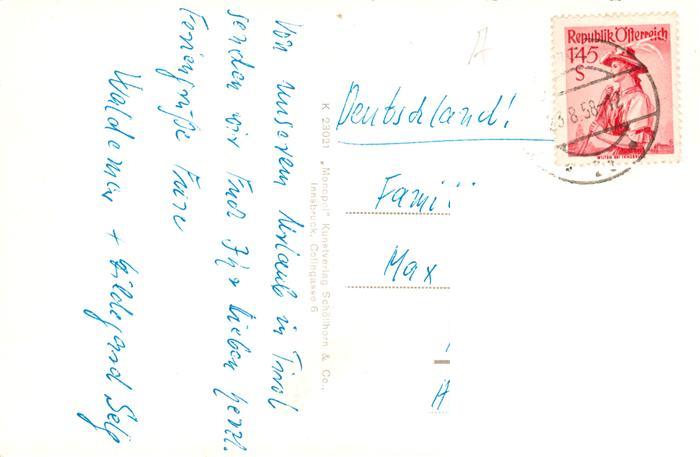 Von unserem Urlaub in Tirol
senden wir Euch Ihr Lieben herzl.
Feriengrüße Eure
Waldemar + Hildegard
K 23021 „Monopol" Kunstverlag Schöllhorn & Co.,
Innsbruck, Colingasse 6
Deutschland!
Famili
Max
Republik Österreich
1·45
S
WILTEN BEI INNSBRUCK
8.58-12
A